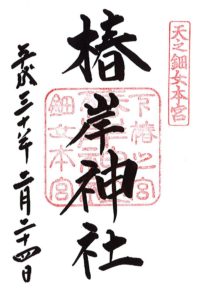 天之鈿女本宮
椿岸神社
下椿之宮
鈿女本宮
平成三十年 二月二十四日